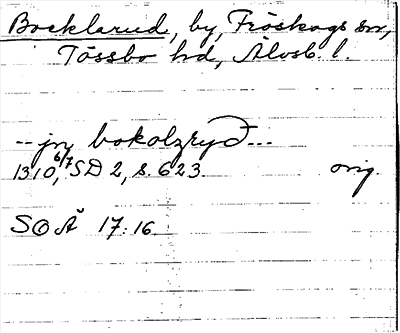 Bocklarud, by, Fröskogs sn,
Tössbo hd, Älvsb. l.
-- jn bokolzryd...
1310 6/7, SD 2, s. 623 orig.
SOÄ 17:16